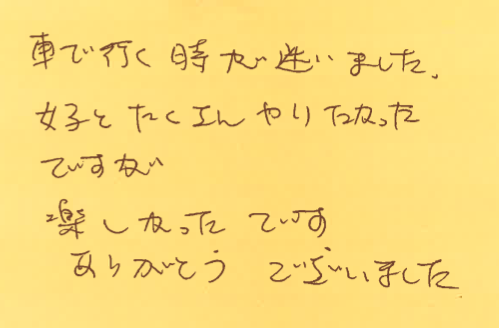 車で行く時が迷いました。
女子とたくさんやりたかった
ですが
楽しかったです
ありがとう ございました